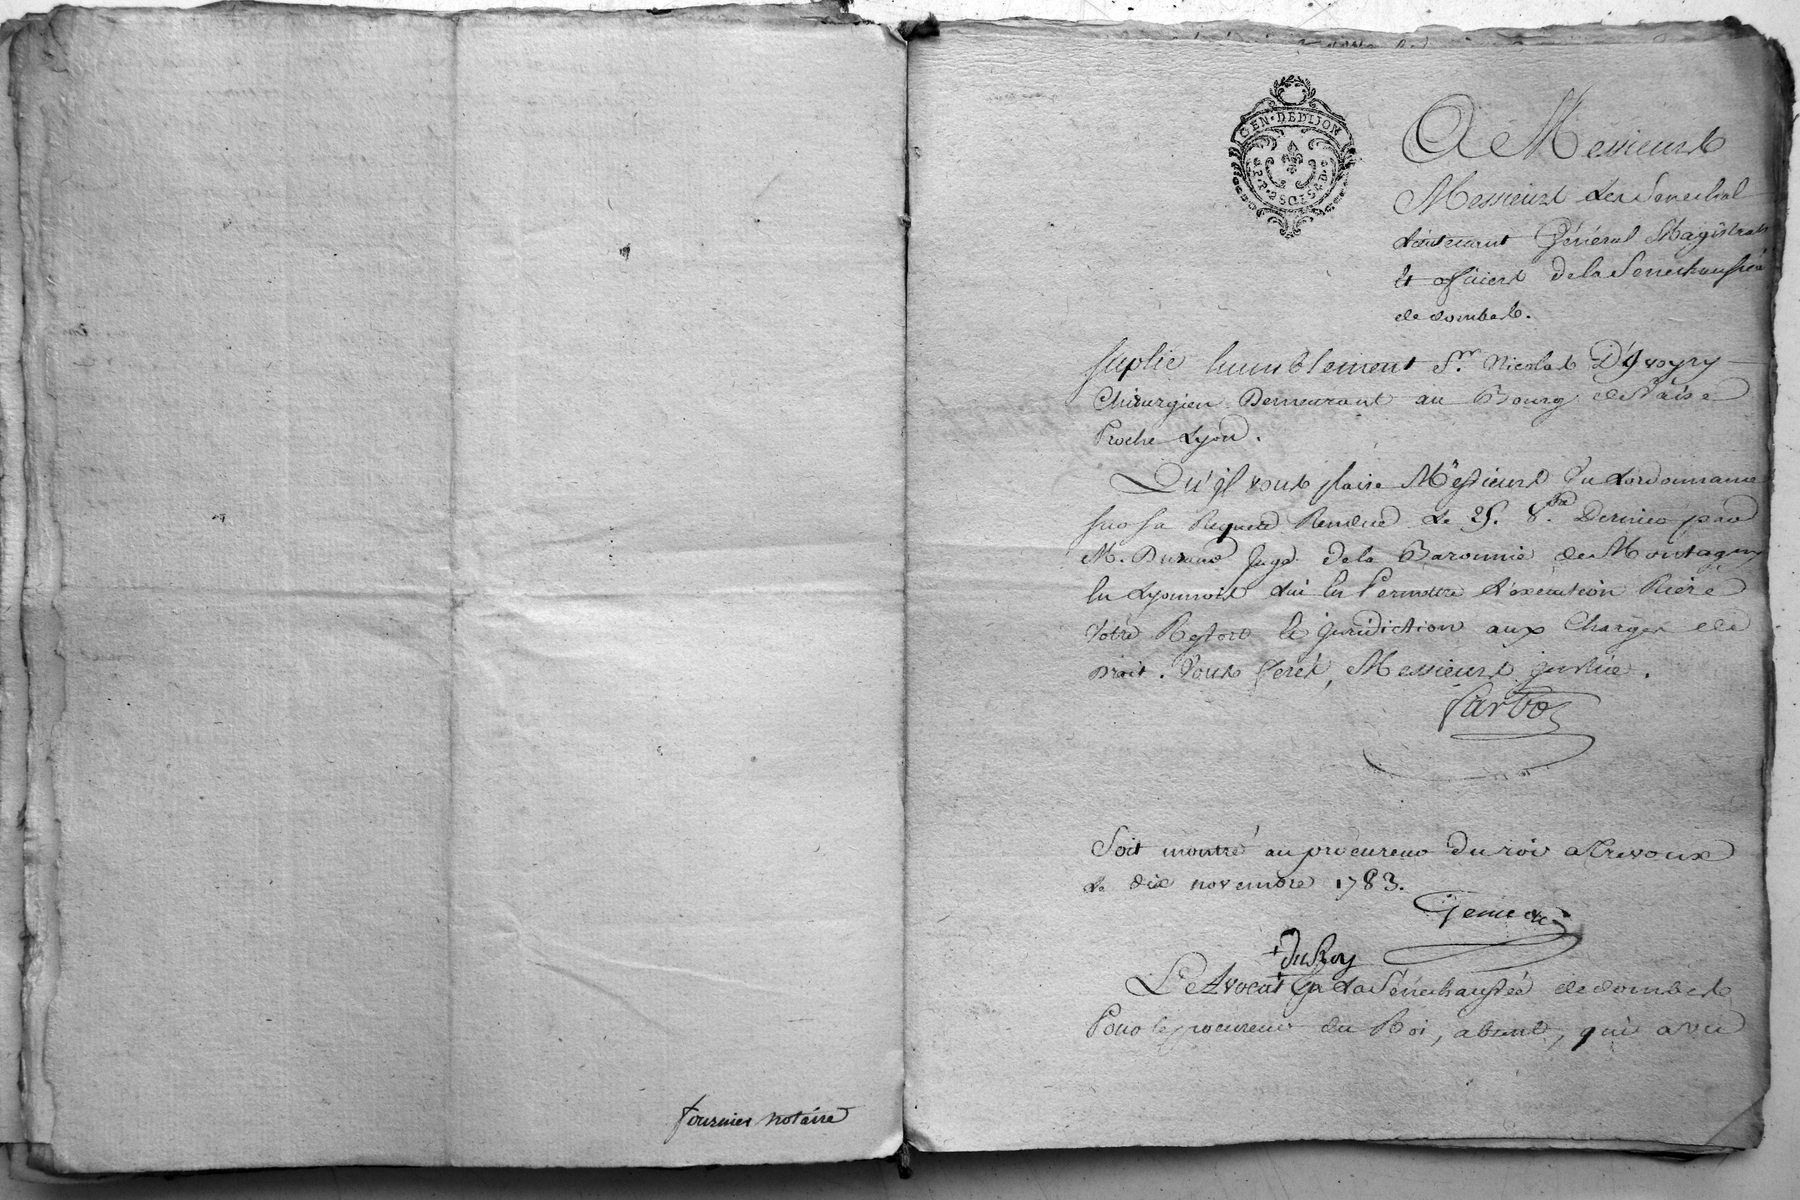 fournier notaire
GEN · DEDIJON
A Messieurs
Messieurs les Senechal
Lieutenant Général Magistrats
et officiers de la Senechaussée
de dombes.
suplie humblement Sr. Nicolas D'Yvoyry
Chirurgien Demeurant au Bourg de Vaise
Proche Lyon.
Qu'il vous plaise Messieurs Vu l'ordonnance
sur sa Requete Rendue le 25. 8.bre Dernier par
M. Durand juge de la Baronnie de Montagny
en Lyonnois lui en Permettre l'execution Riere
votre Ressort et juridiction aux Charges de
Droit. Vous ferés, Messieurs, justice.
Soit montré au procureur du roi a Trevoux
Le dix novembre 1783.
+ du Roy
L'Avocat + en La Sénéchaussée de dombes
Pour le procureur du Roi, absent, qui a vu